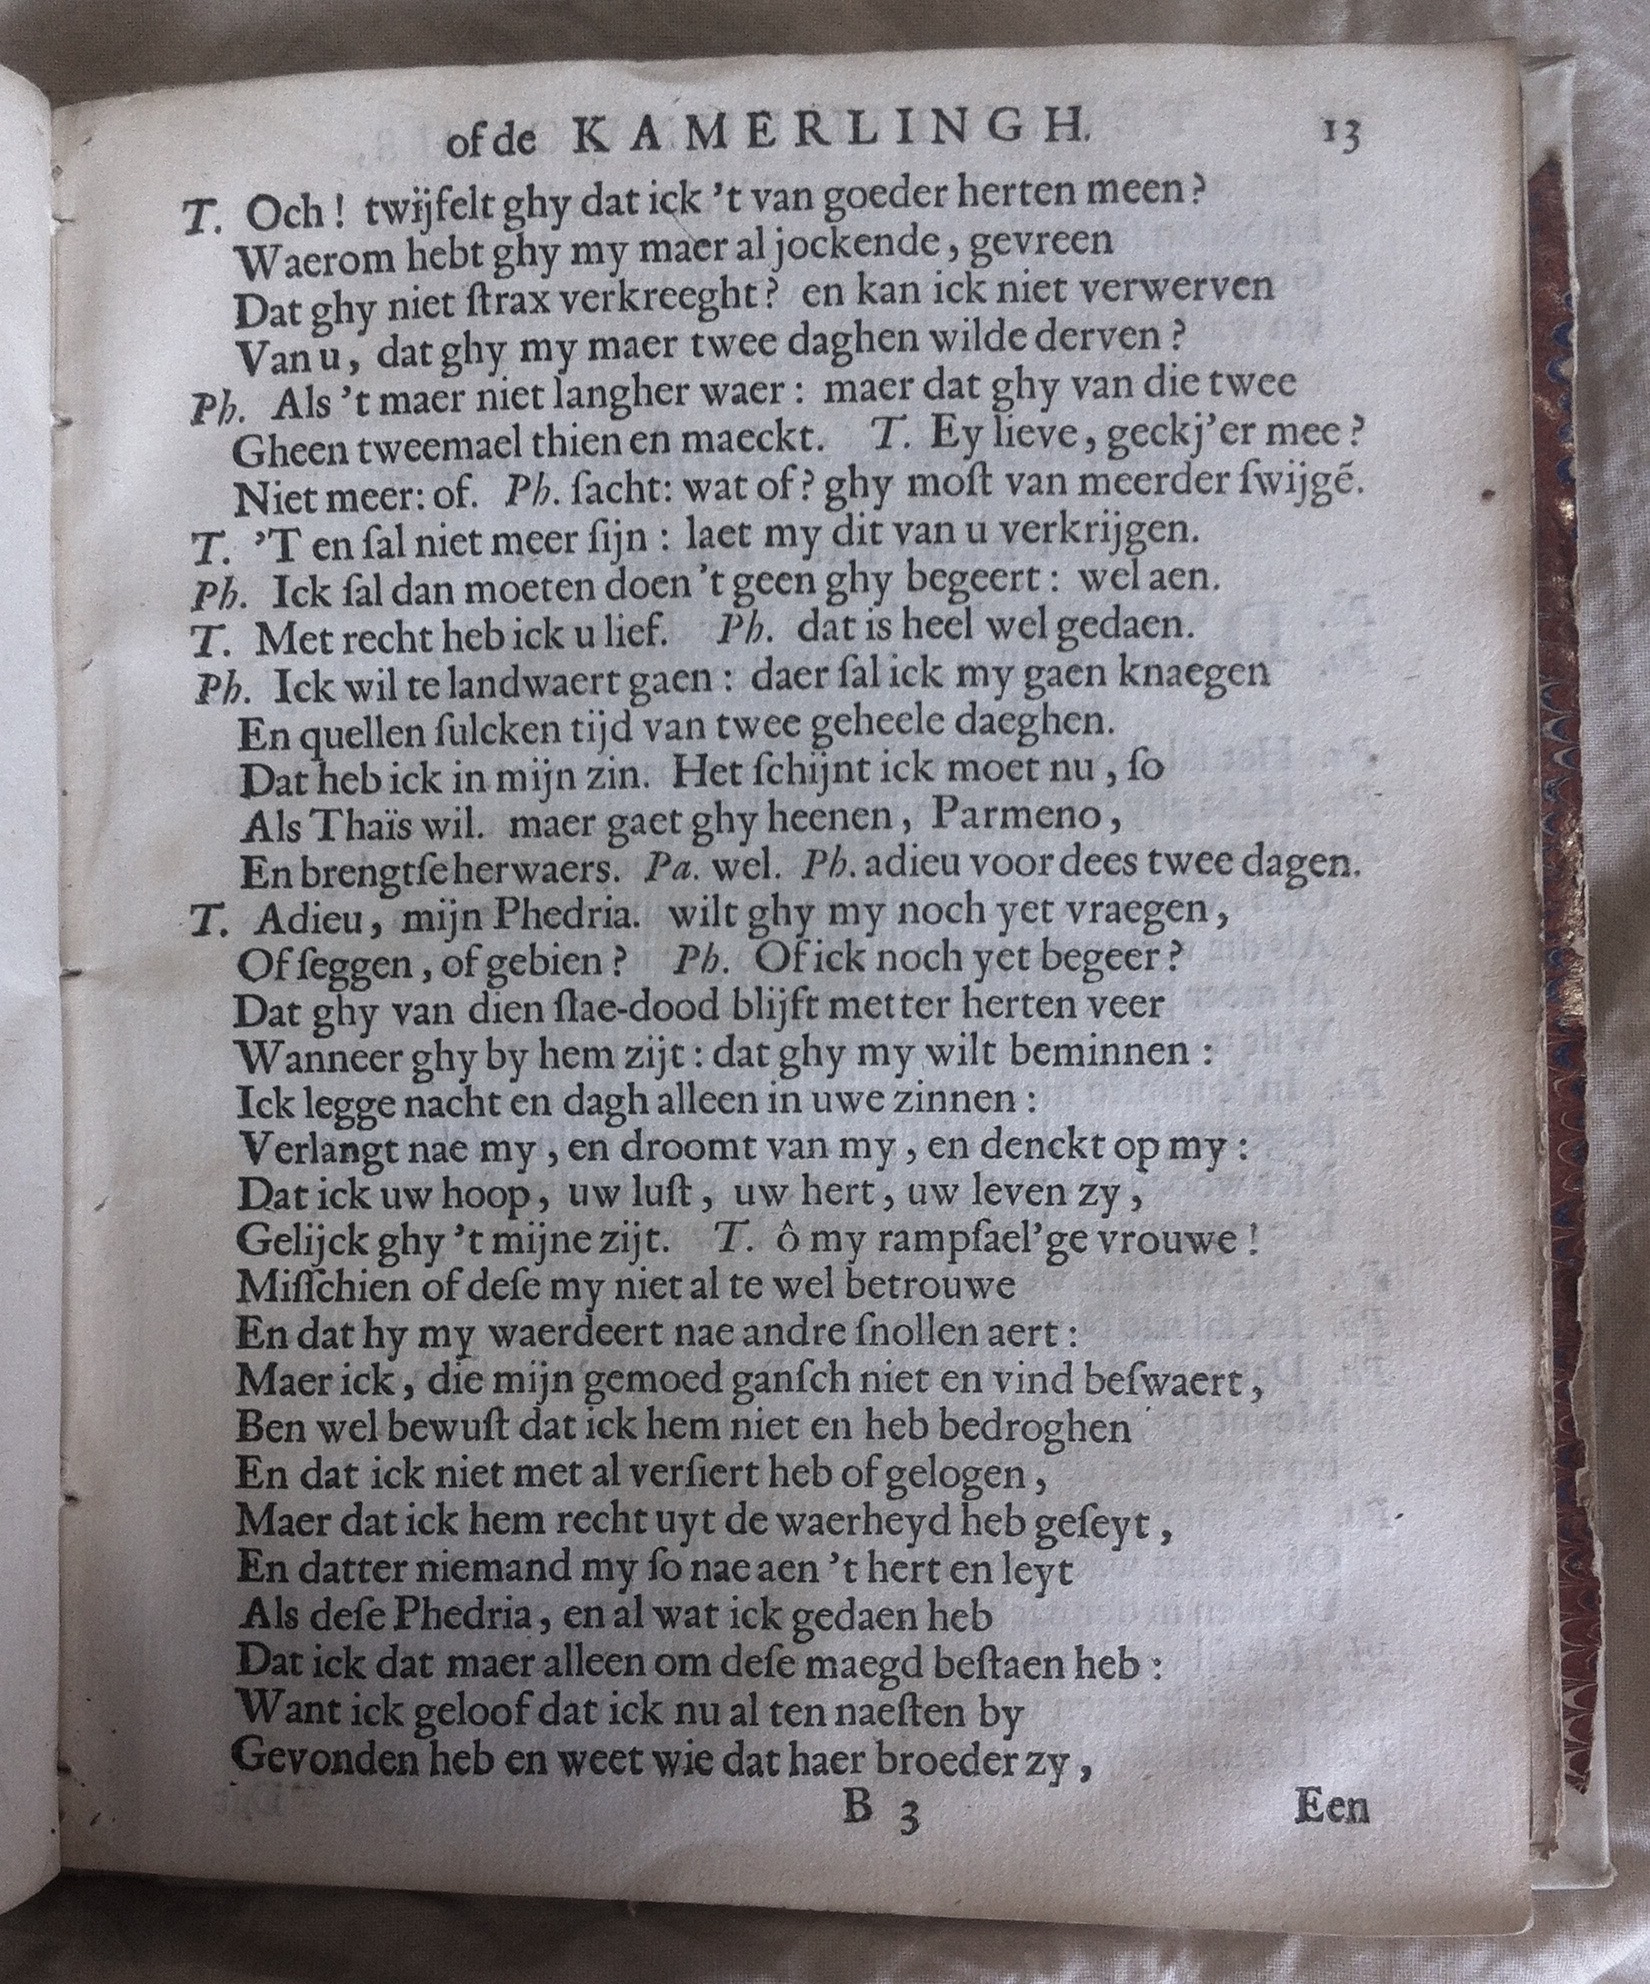 of de KAMERLINGH. 13
T. Och! twijfelt ghy dat ick 't van goeder herten meen?
Waerom hebt ghy my maer al jockende, gevreen
Dat ghy niet ſtrax verkreeght? en kan ick niet verwerven
Van u, dat ghy my maer twee daghen wilde derven?
Ph. Als 't maer niet langher waer: maer dat ghy van die twee
Gheen tweemael thien en maeckt. T. Ey lieve, geckj'er mee?
Niet meer: of. Ph. ſacht: wat of? ghy moſt van meerder ſwijgẽ.
T. 'T en ſal niet meer ſijn: laet my dit van u verkrijgen.
Ph. Ick ſal dan moeten doen 't geen ghy begeert: wel aen.
T. Met recht heb ick u lief. Ph. dat is heel wel gedaen.
Ph. Ick wil te landwaert gaen: daer ſal ick my gaen knaegen
En quellen ſulcken tijd van twee geheele daeghen.
Dat heb ick in mijn zin. Het ſchijnt ick moet nu, ſo
Als Thaïs wil. maer gaet ghy heenen, Parmeno,
En brengtſe herwaers. Pa. wel. Ph. adieu voor dees twee dagen.
T. Adieu, mijn Phedria. wilt ghy my noch yet vraegen,
Of ſeggen, of gebien? Ph. Of ick noch yet begeer?
Dat ghy van dien ſlae-dood blijft metter herten veer
Wanneer ghy by hem zijt: dat ghy my wilt beminnen:
Ick legge nacht en dagh alleen in uwe zinnen:
Verlangt nae my, en droomt van my, en denckt op my:
Dat ick uw hoop, uw luſt, uw hert, uw leven zy,
Gelijck ghy 't mijne zijt. T. ô my rampſael'ge vrouwe!
Miſſchien of deſe my niet al te wel betrouwe
En dat hy my waerdeert nae andre ſnollen aert:
Maer ick, die mijn gemoed ganſch niet en vind beſwaert,
Ben wel bewuſt dat ick hem niet en heb bedroghen
En dat ick niet met al verſiert heb of gelogen,
Maer dat ick hem recht uyt de waerheyd heb geſeyt,
En datter niemand my ſo nae aen 't hert en leyt
Als deſe Phedria, en al wat ick gedaen heb
Dat ick dat maer alleen om deſe maegd beſtaen heb:
Want ick geloof dat ick nu al ten naeſten by
Gevonden heb en weet wie dat haer broeder zy,
B 3 Een